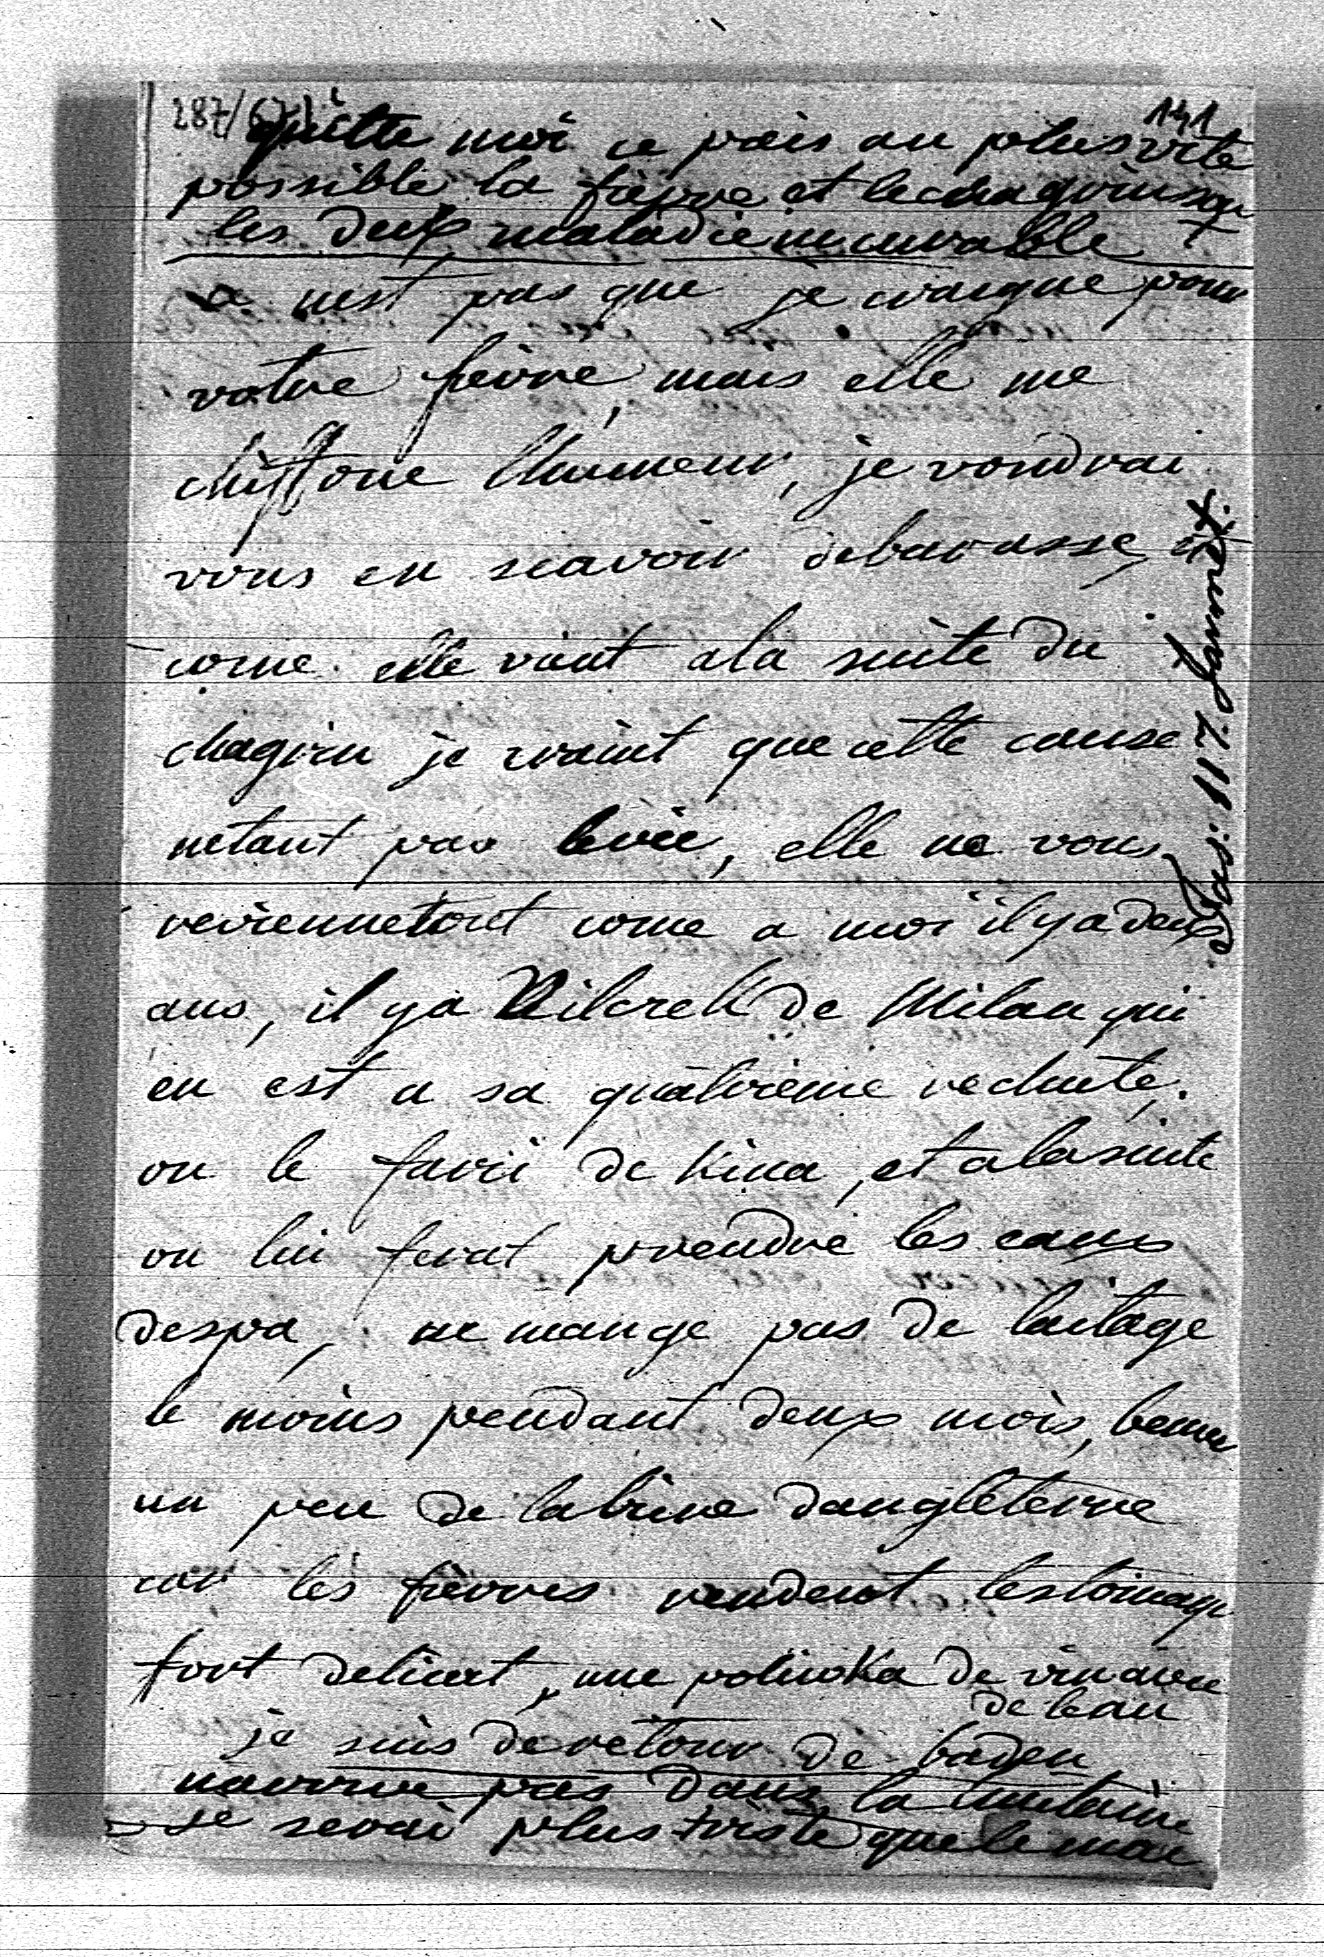 287/67 141
quitte moi ce païs au plus vite
possible la fièvre et le chagrin son
les deux maladie incurvable
ce nest pas que je craigne pour
votre fièvre, mais elle me
chiffone lhumeur, je voudrai
vous en scavoir debarassé, et
come elle vient a la suite du
chagrin je craint que cette cause
netant pas levée, elle ne vous
reviennetout come a moi il y a deux
ans, il y a Vilcrek de Milan qui
en est a sa quatrieme rechute,
on le farci de kina, et a la suite
on lui ferat prendre les eaux
despa, ne mange pas de laitage
le moins pendant deux mois, beuve
un peu de la biere dangleterre
car les fièvres rendent lestomage
fort delicat, une polivka de vin avec
de leau
je suis de retour de baden
narrive pas dans la
je serai plus triste que le mai
Pas: 11 12 Janner